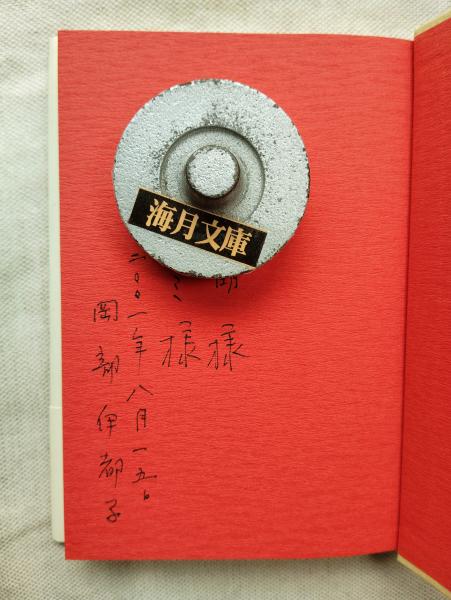 海月文庫
様
様
二〇〇一年八月一五日
岡部伊都子